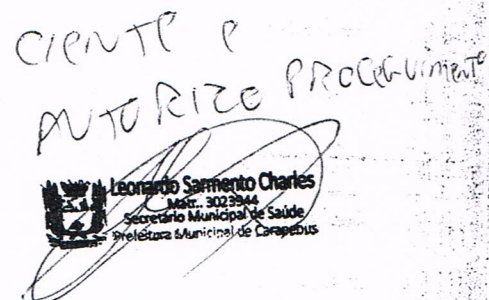 CIENTE e
AUTORIZO PROCEGUIMENTO
Leonardo Sarmento Charles
Matr.. 3023944
Secretário Municipal de Saúde
Prefeitura Municipal de Carapebus